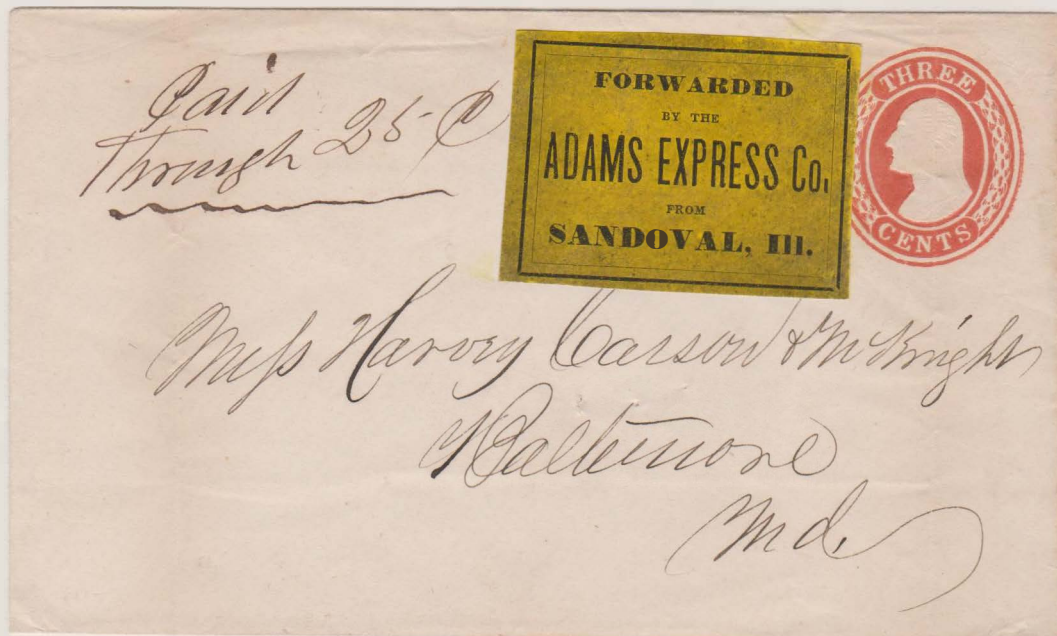 Paid
Through 25 ¢
FORWARDED
BY THE
ADAMS EXPRESS Co.
FROM
SANDOVAL, Ill.
THREE
CENTS
Mess Harvey Carson & McKnight
Baltimore
Md.